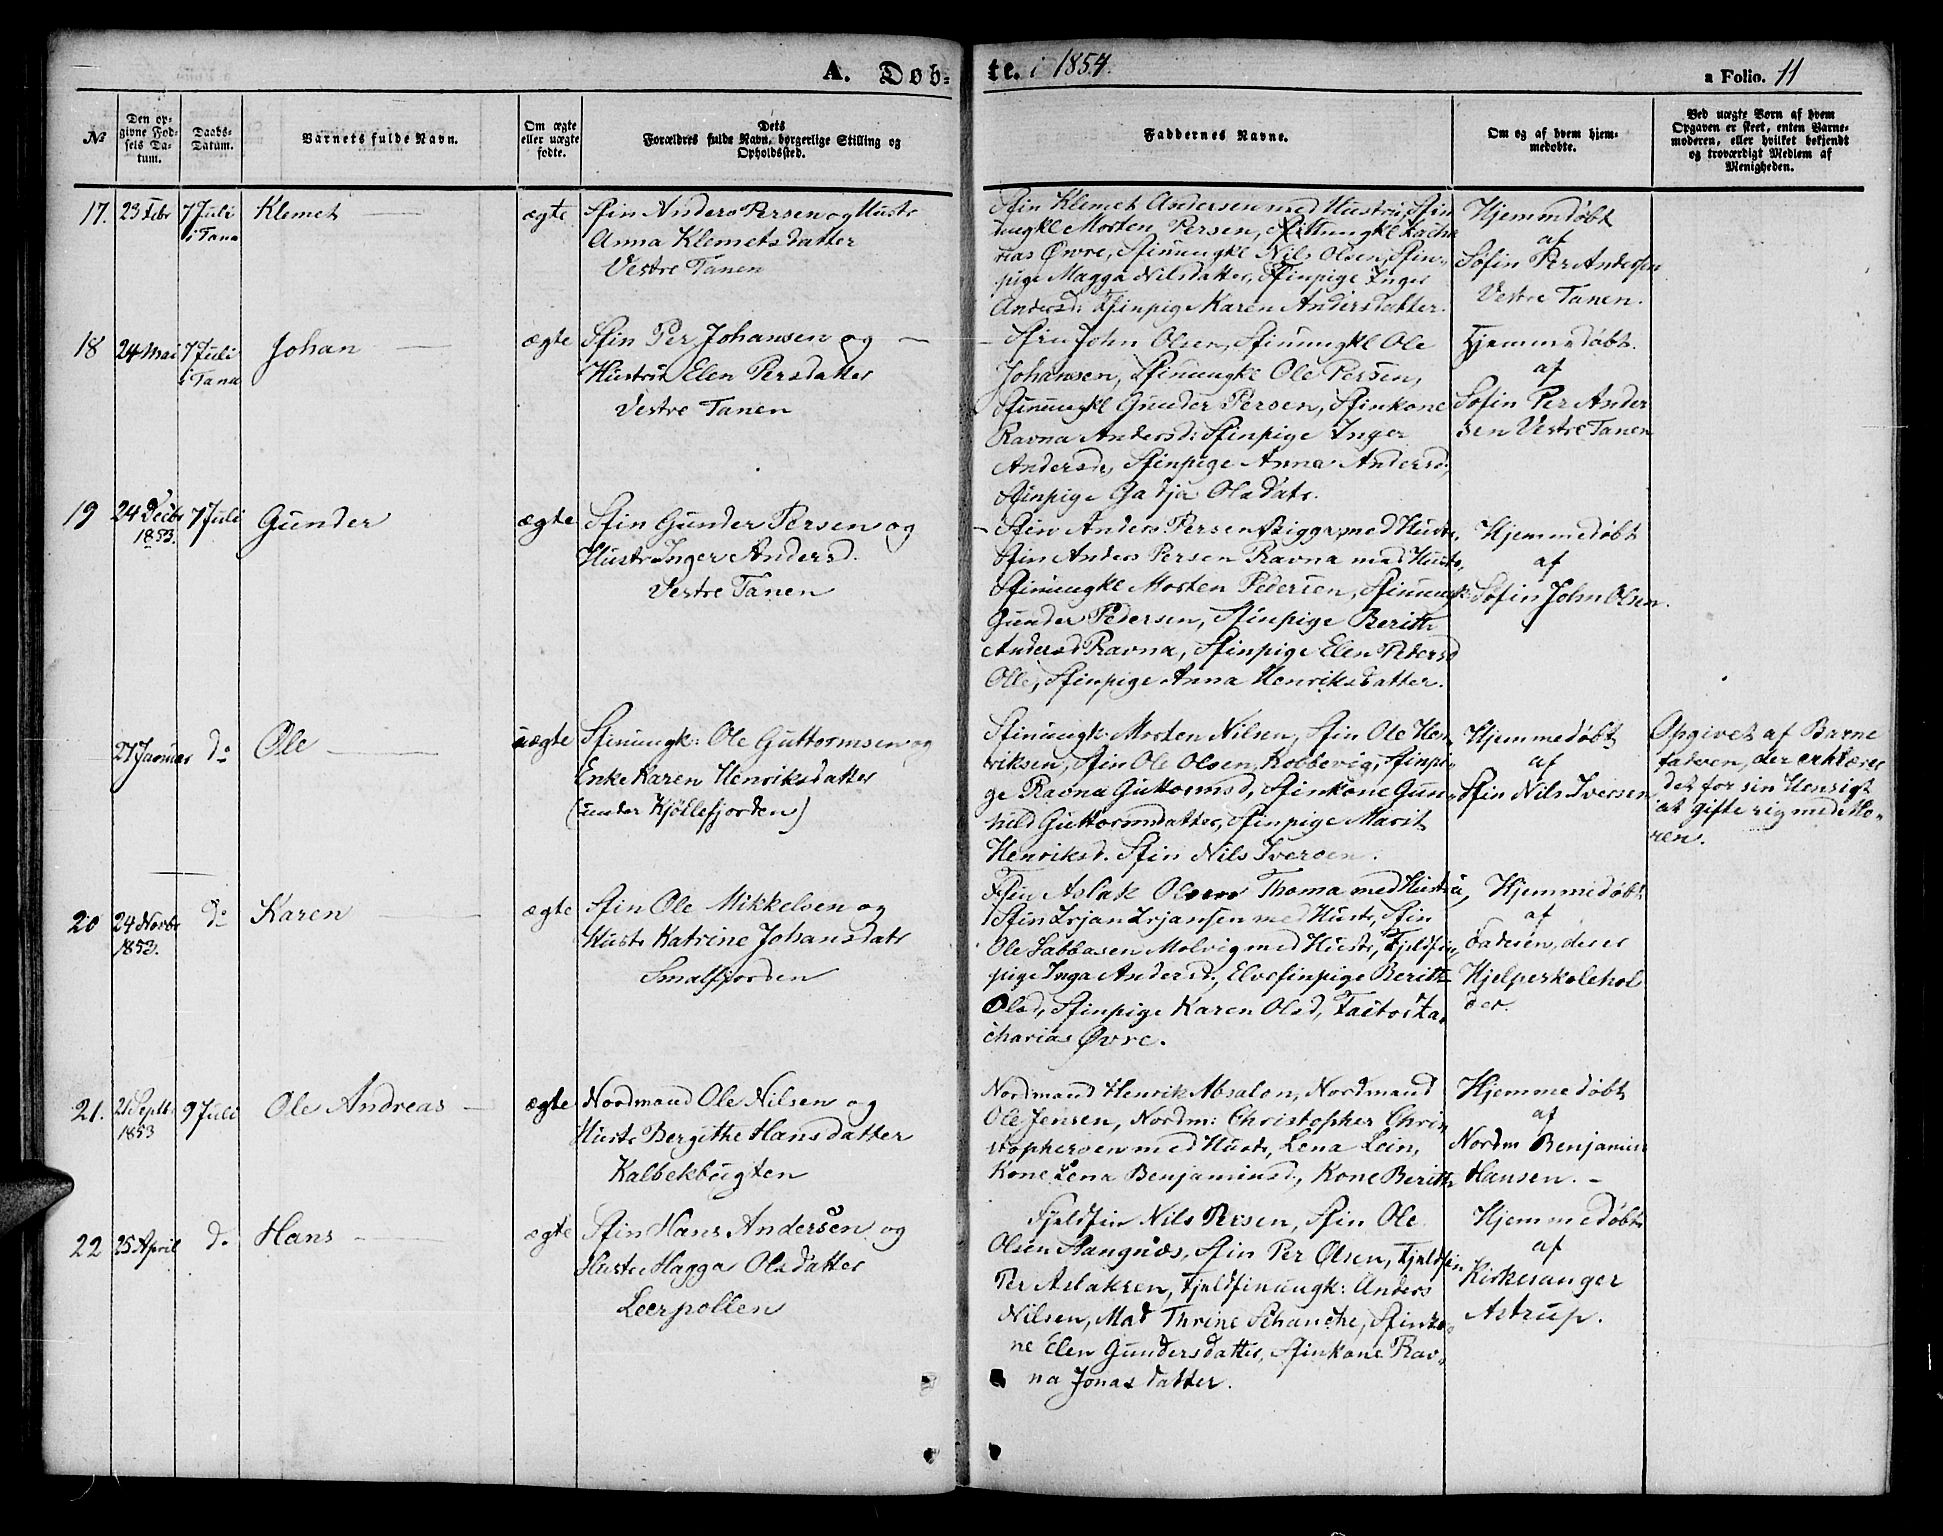 A. Døb-
te. i 1854.
a Folio. 11
№
Den op-
givne Fød-
sels Da-
tum.
Daabs-
Datum.
Barnets fulde Navn.
Om ægte
eller uægte
fødte.
Dets
Forældres fulde Navn, borgerlige Stilling og
Opholdssted.
Faddernes Navne.
Om og af hvem hjem-
medøbte.
Ved uægte Børn af hvem
Opgaven er skeet, enten Barne-
moderen, eller hvilket bekjendt
og troværdigt Medlem af
Menigheden.
17. 23 Febr 7 Juli Klemet ægte Sfin Anders Persen og Hustr
i Tana Anna Klemetsdatter
Vestre Tanen
Sfin Klemet Andersen med Hustru, Sfin
ungkl Morten Persen, Zacha
rias Øvre, Sfinungkl Nils Olsen, Sfin-
pige Magga Nilsdatter, Sfinpige Inger
Andersd: Sfinpige Karen Andersdatter.
Hjemmdøbt
af
Søfin Per Andersen
Vestre Tanen.
18 24 Mai 7 Juli Johan ægte Sfin Per Johansen og
i Tana Hustru Elen Persdatter
Vestre Tanen
John Olsen, Sfinungkl Ole
Johansen, Sfinungkl Ole Persen,
Sfinungkl Gunder Persen, Sfinkone
Ravna Andersd: Sfinpige Inger
Andersd, Sfinpige Anna Andersd,
Sfinpige Gadja Olsdatr.
Hjemmedøbt.
af
Søfin Per Ander
sen Vestre Tanen
19 24 Decbr 7 Juli Gunder ægte Sfin Gunder Persen og
1853. Hustr Inger Andersd.
Vestre Tanen
Sfin Anders Persen Bigga, med Hustr,
Sfin Anders Persen Ravna med Hustr,
Sfinungkl Morten Pedersen, Sfinungk:
Gunder Pedersen, Sfinpige Berith
Andersd Ravna, Sfinpige Elen Pedersd
Olle, Sfinpige Anna Henriksdatter.
Hjemmedøbt
af
Søfin John Olsen.
27 Januar do Ole uægte Sfinungk: Ole Guttormsen og
Enke Karen Henriksdatter
(under Kjøllefjorden)
Sfinungk: Morten Nilsen, Sfin Ole Hen
riksen, Sfin Ole Olsen Kobbevig, Sfinpi-
ge Ravna Guttormsd, Sfinkone Gun-
hild Guttormsdatter, Sfinpige Marit
Henriksd. Sfin Nils Iversen.
Hjemmedøbt
af
Sfin Nils Iversen
Opgivet af Barne
faderen, der erklærer
det for sin Hensigt
at gifte sig med Mo-
ren.
20 24 Novbr do Karen ægte Sfin Ole Mikkelsen og
1853. Hustr Katrine Johansdatr
Smalfjorden
Sfin Aslak Olsen Thoma med Hustru,
Sfin Irjan Irjansen med Hustr, Sfin
Ole Sabbasen Molvig med Hustr, Fjeldfin-
pige Inga Andersd., Elvefinpige Berith
Olsd, Sfinpige Karen Olsd, Factor Za-
charias Øvre.
Hjemmedøbt
af
Faderen, der er
Hjelpeskolehol
der.
21. 21 Septbr 9 Juli Ole Andreas ægte Nordmand Ole Nilsen og
1853 Hustr Bergithe Hansdatter
Kalbekbugten
Nordmand Henrik Absalon, Nordmand
Ole Jensen, Nordm: Christopher Chri
stophersen med Hustr, Lena Lein,
Kone Lena Benjaminsd, Kone Berith
Hjemmedøbt
af
Nordm Benjamin
Hansen.
22 25 April do Hans ægte Sfin Hans Andersen og
Hustr Magga Olsdatter
Leerpollen
Fjeldfin Nils Persen, Sfin Ole
Olsen Stangnæs, Sfin Per Olsen, Fjeldfin
Per Aslaksen, Fjeldfinungk: Anders
Nilsen, Mad Thrine Schanche, Sfinko-
ne Elen Gundersdatter, Sfinkone Rav-
na Jonasdatter.
Hjemmedøbt
af
Kirkesanger
Astrup.